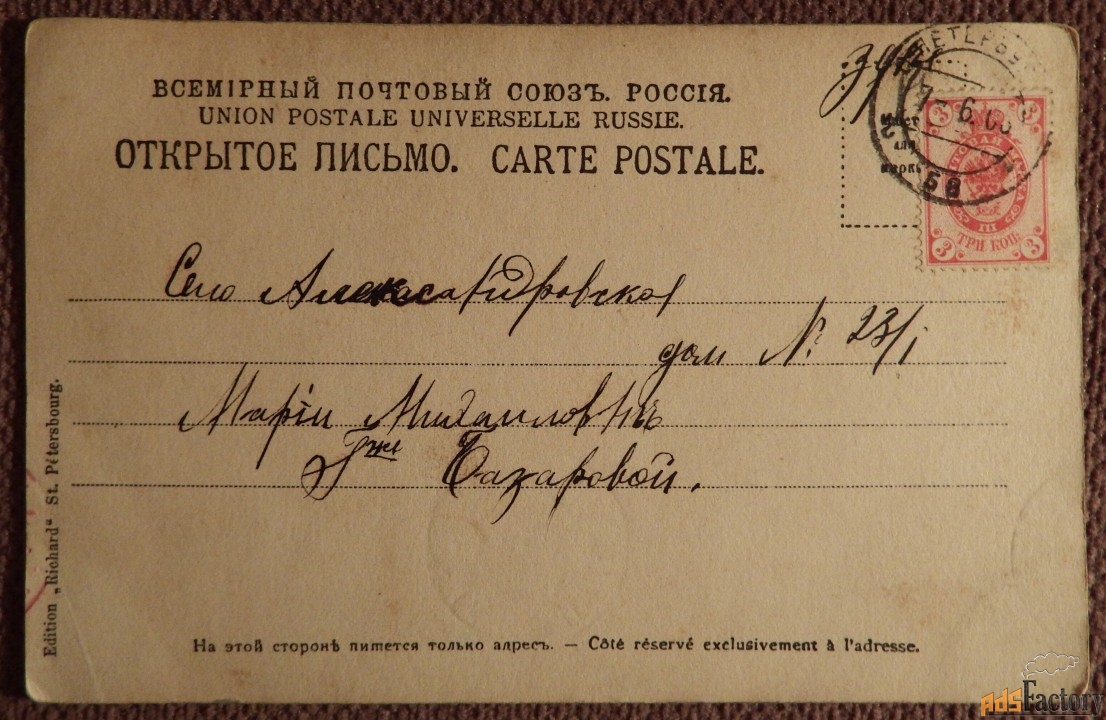 ВСЕМІРНЫЙ ПОЧТОВЫЙ СОЮЗЪ. РОССІЯ.
UNION POSTALE UNIVERSELLE RUSSIE.
ОТКРЫТОЕ ПИСЬМО. CARTE POSTALE.
Мѣсто
для
марки
58
3 3
ТРИ КОП.
3 3
Село Александровское
дом №. 23/1
Маріи Михаиловнѣ
Гжѣ Базаровой.
Edition „Richard“ St. Pétersbourg.
На этой сторонѣ пишется только адресъ. — Côté réservé exclusivement à l'adresse.
AdsFactory